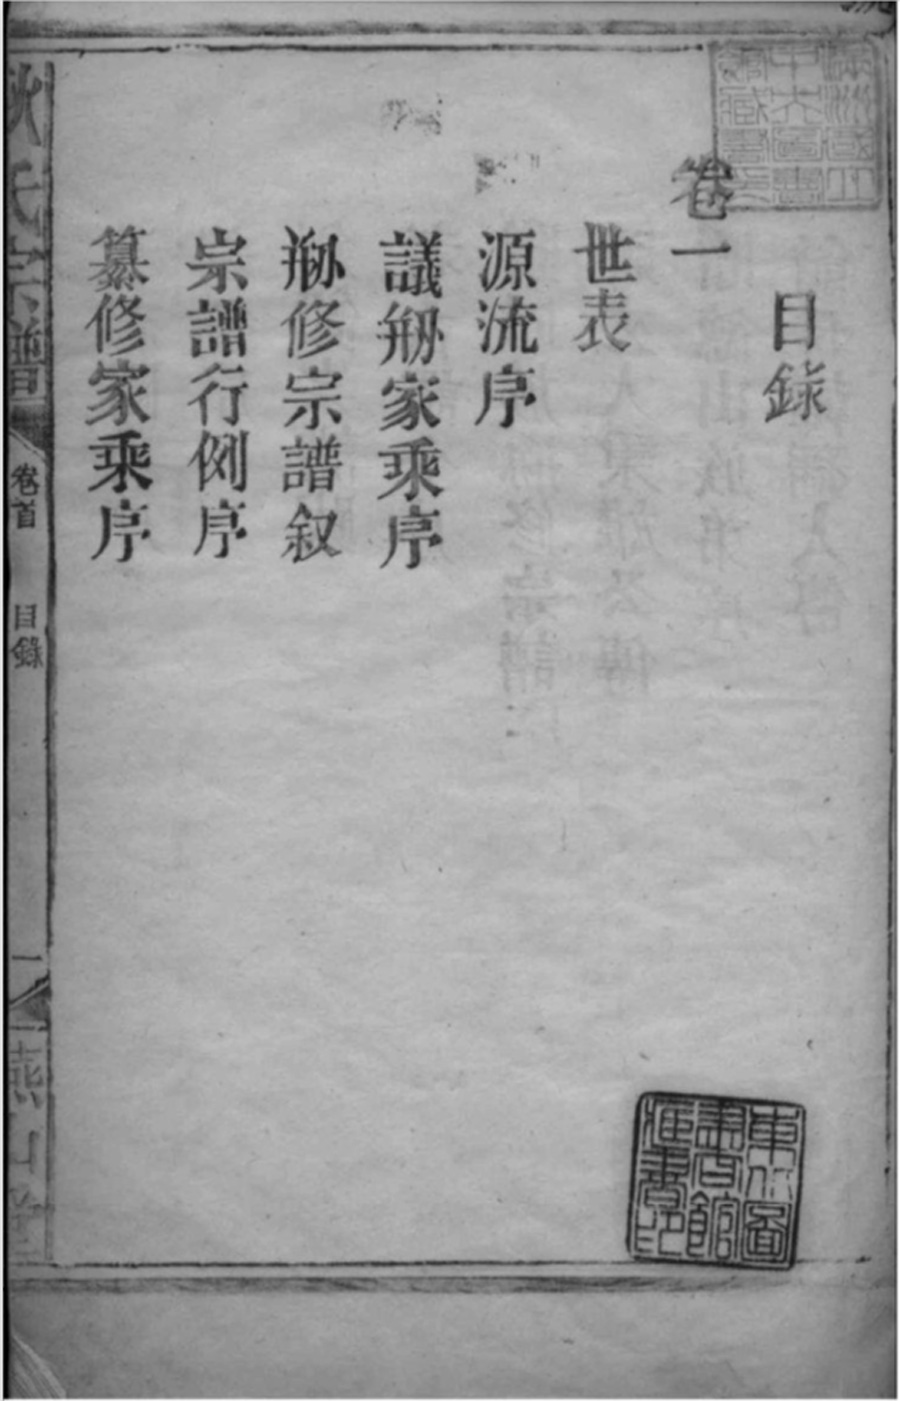 目錄
卷一
世表
源流序
議刱家乘序
刱修宗譜叙
宗譜行例序
纂修家乘序
氏宗譜
卷首
目錄
一
燕山
東北圖書館所藏書印